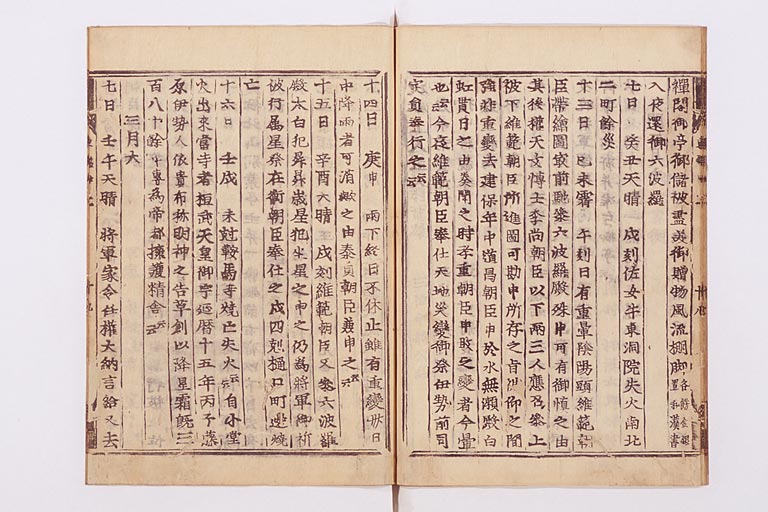 禪閤御亭御儲被盡美御贈物風流棚脚各餝金銀置和漢書
入夜還御六波羅
七日 癸丑天晴 戌刻佐女牛東洞院失火南北
二町餘災
十三日 己未霽 午刻日有重暈陰陽頭維範朝
臣帶繪圖最前馳參六波羅殿殊申可有御愼之由
其後權天文博士季尚朝臣以下兩三人應召參上
彼下維範朝臣所進圖可勘申所存之旨被仰之間
強非重變去建保年中道昌朝臣申於水無瀬殿白
虹貫日之由奏聞之時孝重朝臣申敗之變者今暈
也云云今夜維範朝臣奉仕天地災變御祭伊勢前司
定員奉行之云云
十四日 庚申 雨下終日不休止雖有重變卅日
中降雨者可消缺之由泰貞朝臣兼申之云云
十五日 辛酉天晴 戌刻維範朝臣又參六波羅
殿太白犯昴歳星犯牛星之由申之仍爲將軍御祈
被行屬星祭在衡朝臣奉仕之戌四剋樋口町邊燒
亡
十六日 壬戌 未剋鞍馬寺燒亡失火云云自小堂
火出來當寺者桓武天皇御宇延暦十五年丙子藤
原伊勢人依貴布祢明神之告草創以降星霜既三
百八十餘年專爲帝都擁護精舍云云
三月大
七日 壬午天晴 將軍家令任權大納言給又去